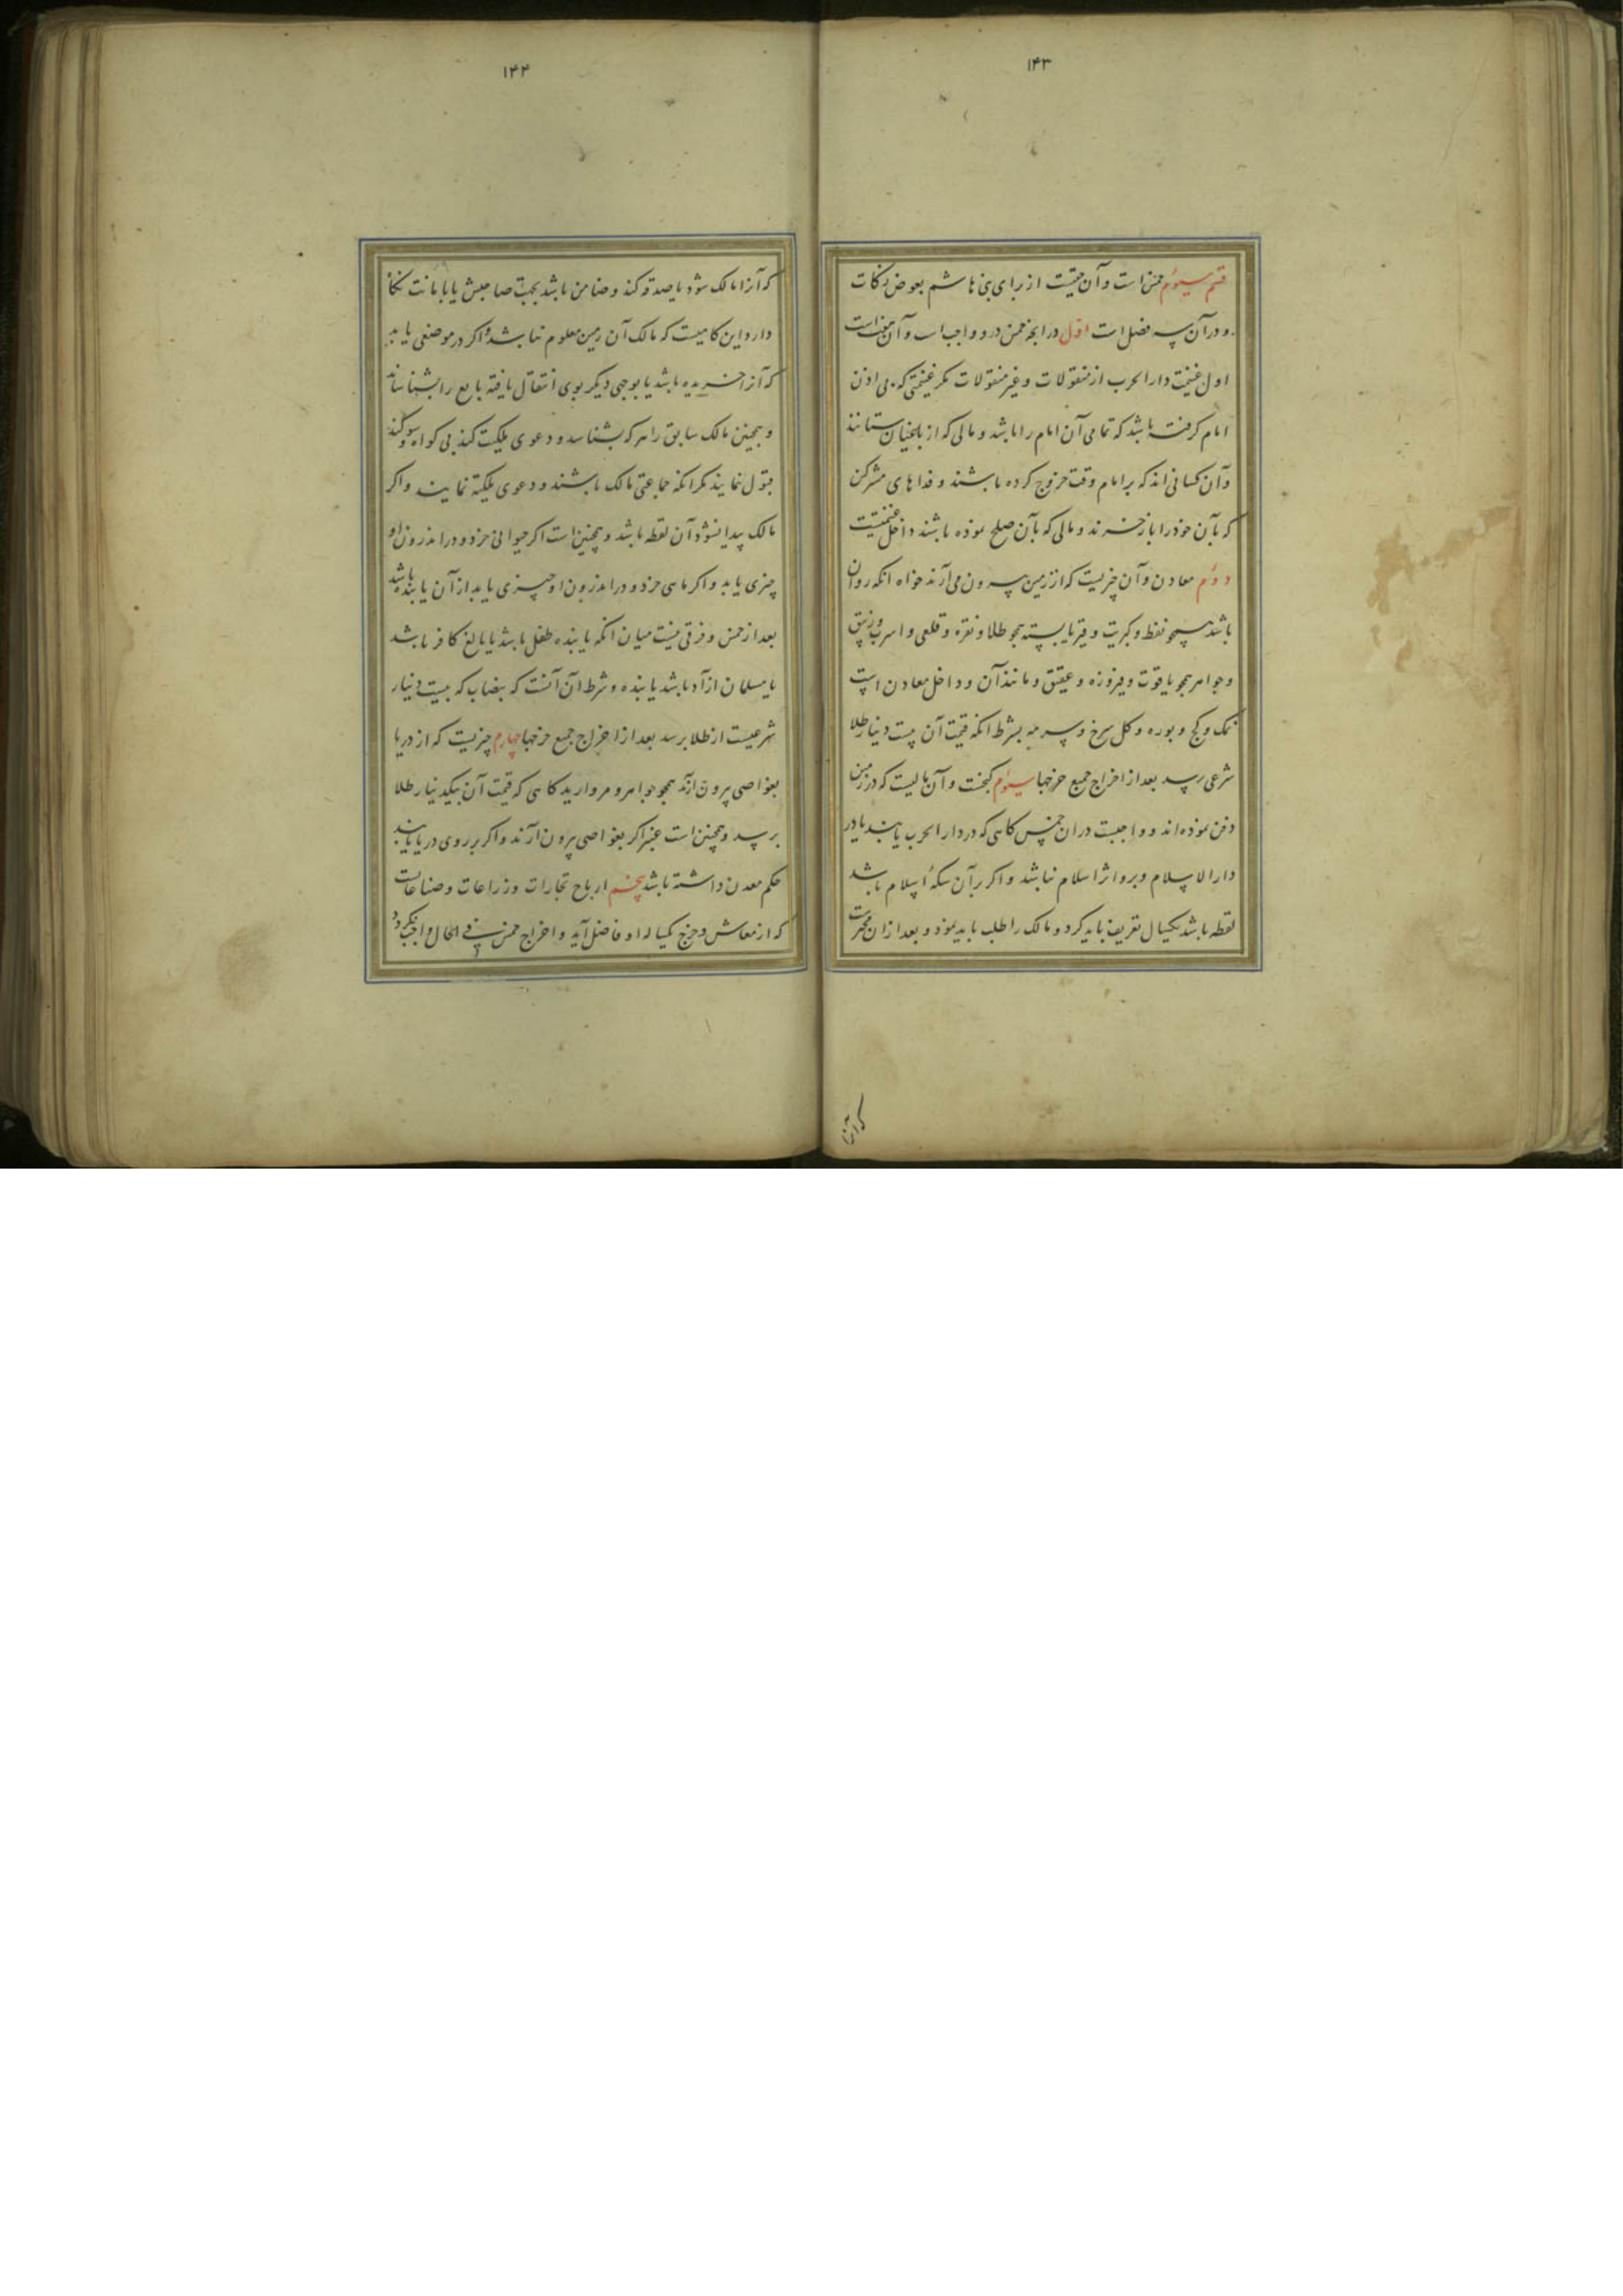 ۱۴۳
قسم سیوم خمس است و آن حقیست از برای بنی هاشم بعوض زکات
و در آن سه فصل است اول در آنچه خمس در و واجب است و آن هفت است
اول غنیمت دار الحرب از منقولات و غیر منقولات مکر غنیمتی که بی اذن
امام کرفته باشد که تمامی آن امام را باشد و مالی که از باغیان ستانند
و آن کسانی اند که بر امام وقت خروج کرده باشند و فداهای مشرکین
که بآن خود را باز خرند و مالی که بآن صلح نموده باشند داخل غنیمتست
دوم معادن و آن چیزیست که از زمین بیرون می آرند خواه انکه روان
باشد همچو نفط و کبریت و قیر یا بسته همچو طلا و نقره و قلعی و اسرب و زیبق
و جواهر همچو یاقوت و فیروزه و عقیق و مانند آن و داخل معادن است
نمک و کج و بوره و کل سرخ و سرمه بشرط انکه قیمت آن بیست دینار طلا
شرعی رسد بعد از اخراج جمیع خرجها سیوم کنجست و آن مالیست که در زمین
دفن نموده اند و واجبست در ان خمس کاهی که در دار الحرب یابند یا در
دار الاسلام و برو اثر اسلام نباشد و اکر بر آن سکه اسلام باشد
لقطه باشد یکسال تعریف باید کرد و مالک را طلب باید نمود و بعد از ان مخیرست
که آنرا
۱۴۴
که آنرا مالک شود یا صدقه کند و ضامن باشد بجهت صاحبش یا بامانت نکاه
دارد و این کاهیست که مالک آن زمین معلوم نباشد و اکر در موضعی یابد
که آنرا خریده باشد یا بوجهی دیکر بوی انتقال یافته بایع را بشناساند
و همچنین مالک سابق را هر که بشناسد و دعوی ملکیت کند بی کواه و سوکند
قبول نمایند مکر انکه جماعتی مالک باشند و دعوی ملکیت نمایند و اکر
مالک پیدا نشود آن لقطه باشد و همچنین است اکر حیوانی خرد و در اندرون او
چیزی یابد و اکر ماهی خرد و در اندرون او چیزی یابد از آن یابنده باشد
بعد از خمس و فرقی نیست میان انکه یابنده طفل باشد یا بالغ کافر باشد
یا مسلمان ازاد باشد یا بنده و شرط آن آنست که بنصاب که بیست دینار
شرعیست از طلا برسد بعد از اخراج جمیع خرجها چهارم چیزیست که از دریا
بغواصی بیرون آرند همچو جواهر و مروارید کاهی که قیمت آن بیکدینار طلا
برسد و همچنین است عنبر اکر بغواصی بیرون آرند و اکر بر روی دریا یابند
حکم معدن داشته باشد پنجم ارباح تجارات و زراعات و صناعاتست
که از معاش و خرج یکساله او فاضل آید و اخراج خمس فی الحال واجب نکردد